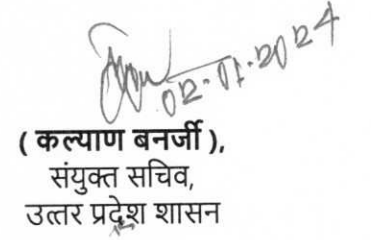 02-01-2024
( कल्याण बनर्जी ),
संयुक्त सचिव,
उत्तर प्रदेश शासन